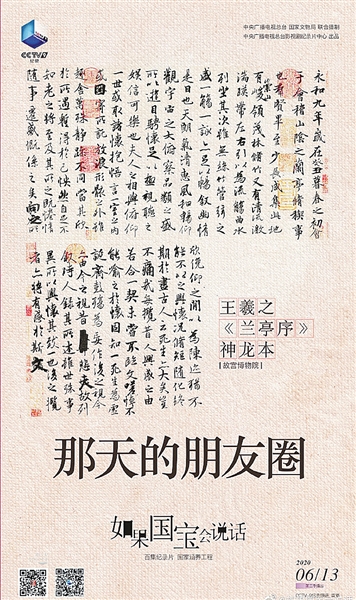 CCTV9
纪录
中央广播电视总台 国家文物局 联合摄制
中央广播电视总台影视剧纪录片中心 出品
永和九年歲在癸丑暮春之初會
于會稽山陰之蘭亭脩稧事
也羣賢畢至少長咸集此地
有崇山峻領茂林脩竹又有清流激
湍暎帶左右引以為流觴曲水
列坐其次雖無絲竹管弦之
盛一觴一詠亦足以暢敘幽情
是日也天朗氣清惠風和暢仰
觀宇宙之大俯察品類之盛
所以遊目騁懷足以極視聽之
娛信可樂也夫人之相與俯仰
一世或取諸懷抱悟言一室之內
或因寄所託放浪形骸之外雖
趣舍萬殊靜躁不同當其欣
於所遇蹔得於己怏然自足不
知老之將至及其所之既惓情
隨事遷感慨係之矣向之所
欣俛仰之閒以為陳迹猶不
能不以之興懷況脩短隨化終
期於盡古人云死生亦大矣豈
不痛哉每攬昔人興感之由
若合一契未嘗不臨文嗟悼不
能喻之於懷固知一死生為虛
誕齊彭殤為妄作後之視今
亦由今之視昔悲夫故列
敘時人錄其所述雖世殊事
異所以興懷其致一也後之攬
者亦將有感於斯文
王羲之
《兰亭序》
神龙本
故宫博物院
那天的朋友圈
如果国宝会说话
百集纪录片 国家涵养工程
2020
06/13